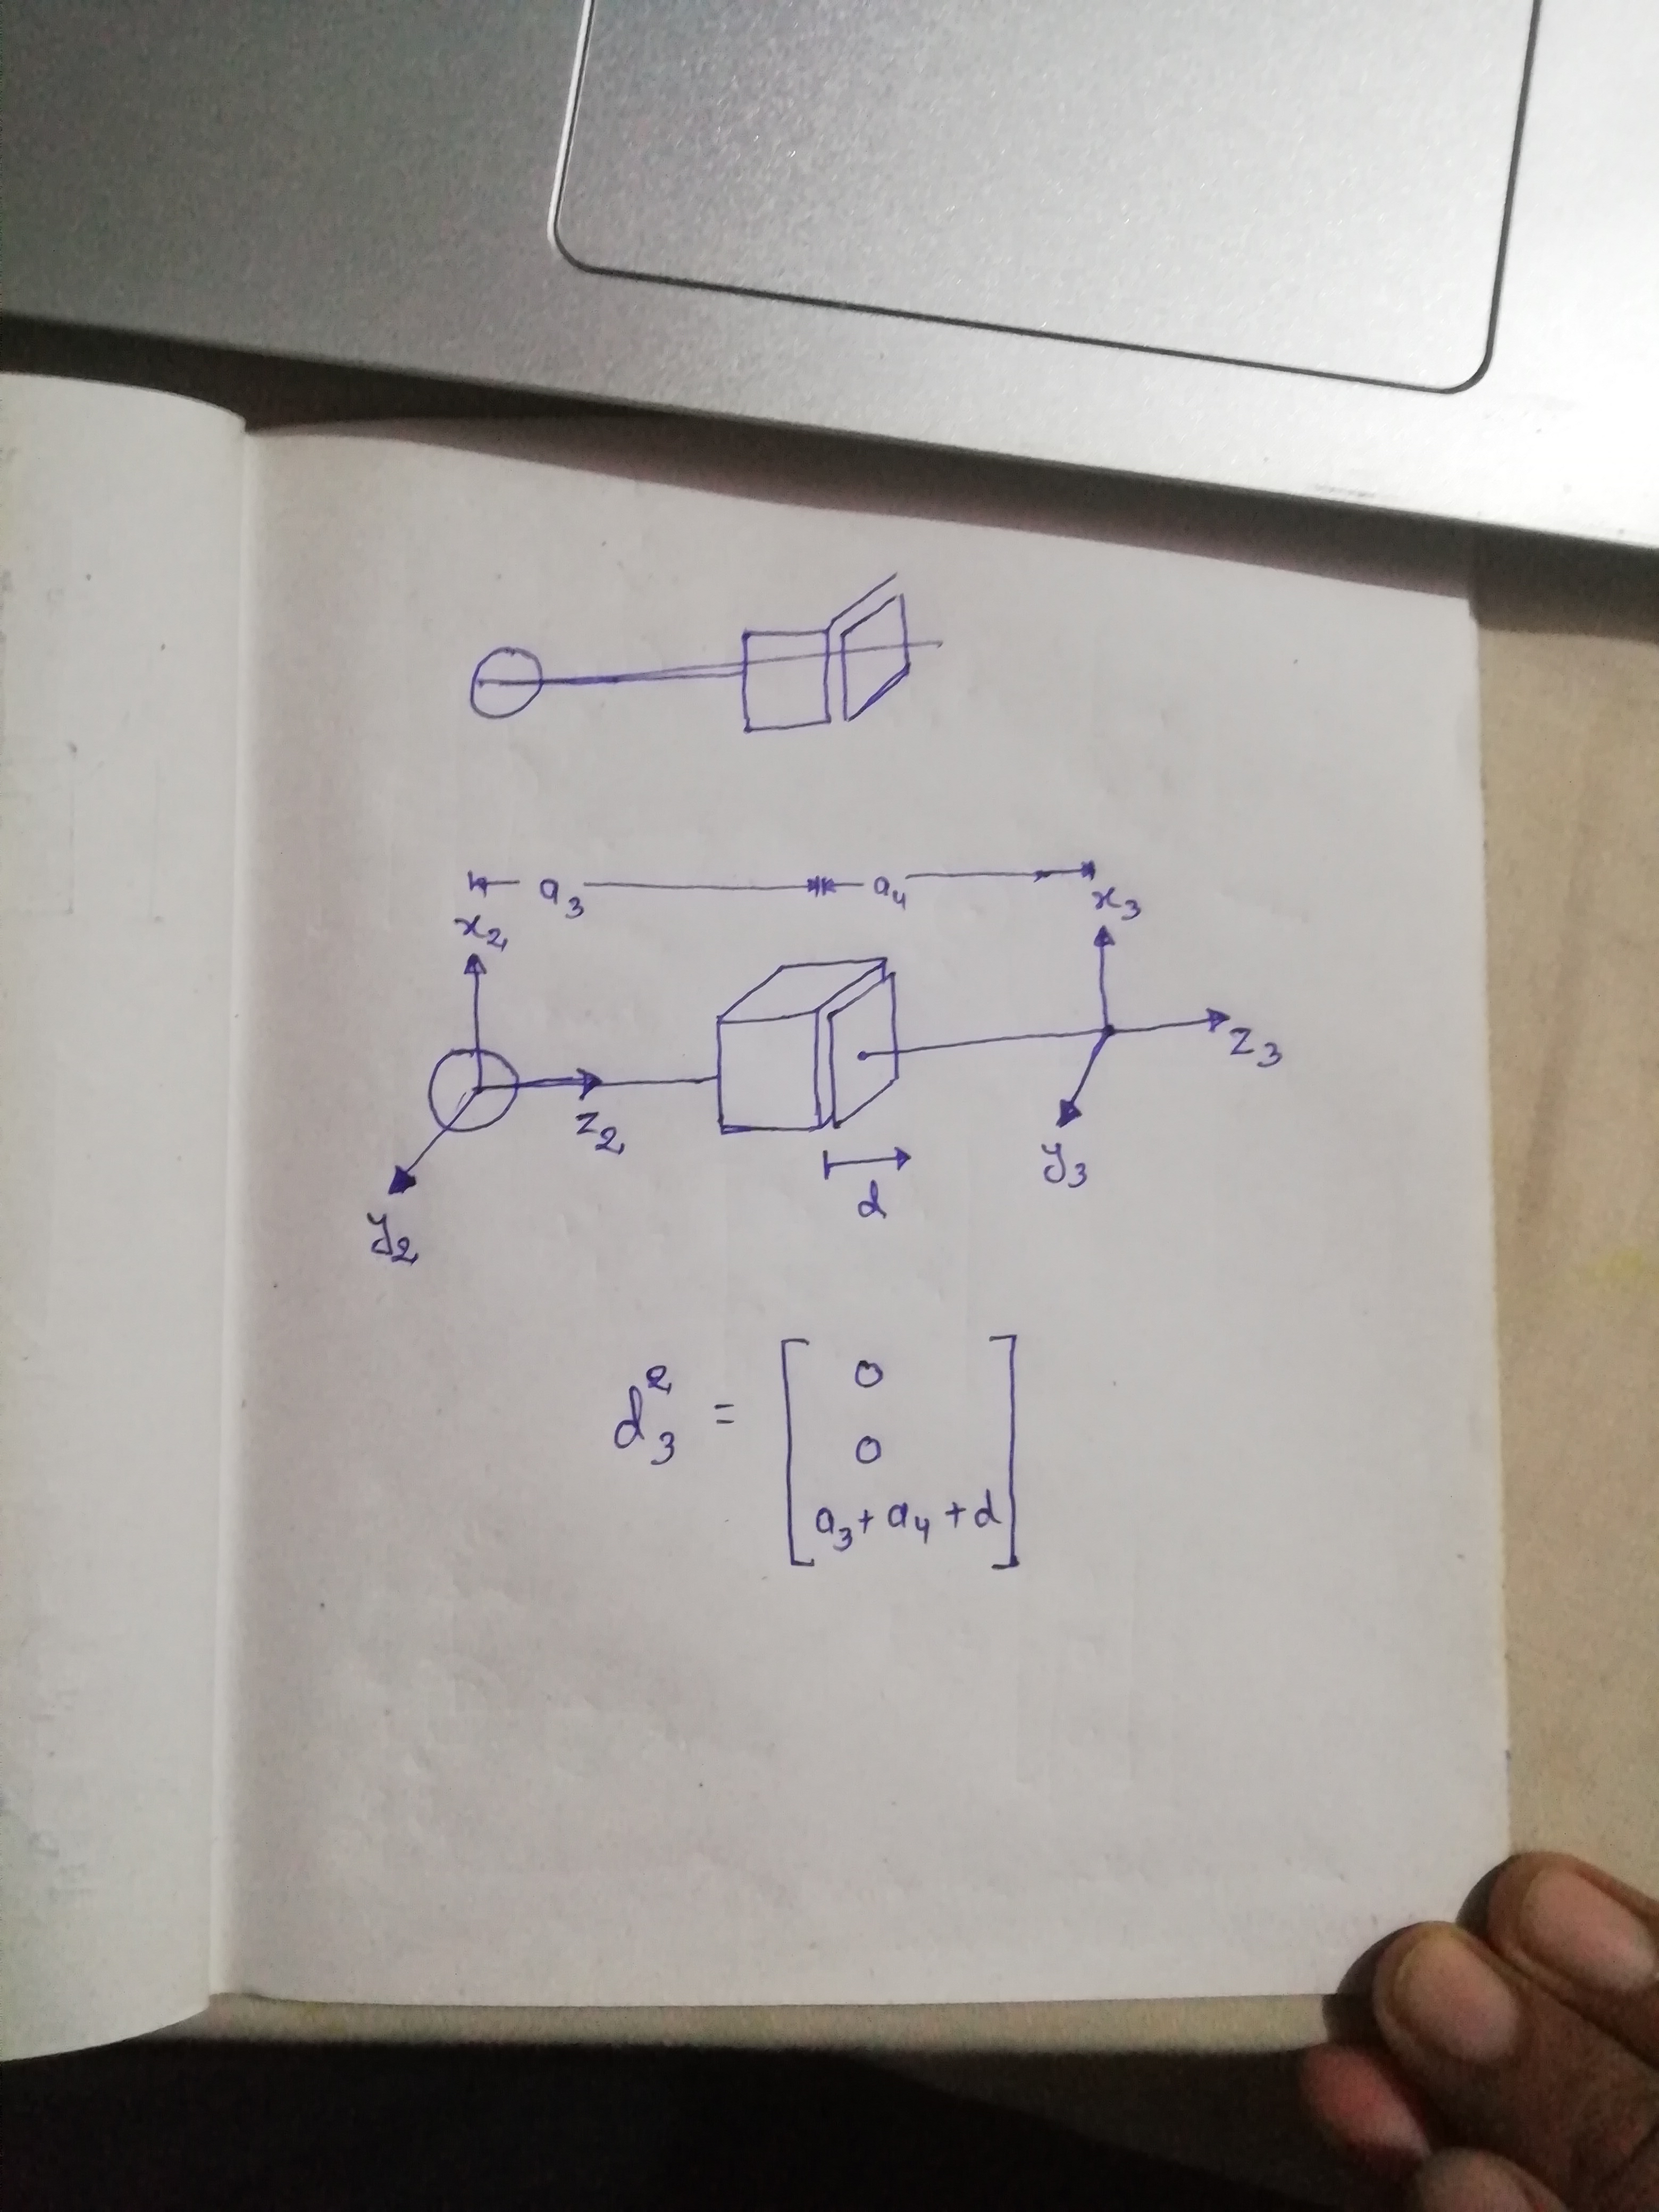 a₃ a₄
x₂ x₃
z₂ z₃
y₂ d y₃
d₃² = [ 0
0
a₃ + a₄ + d ]